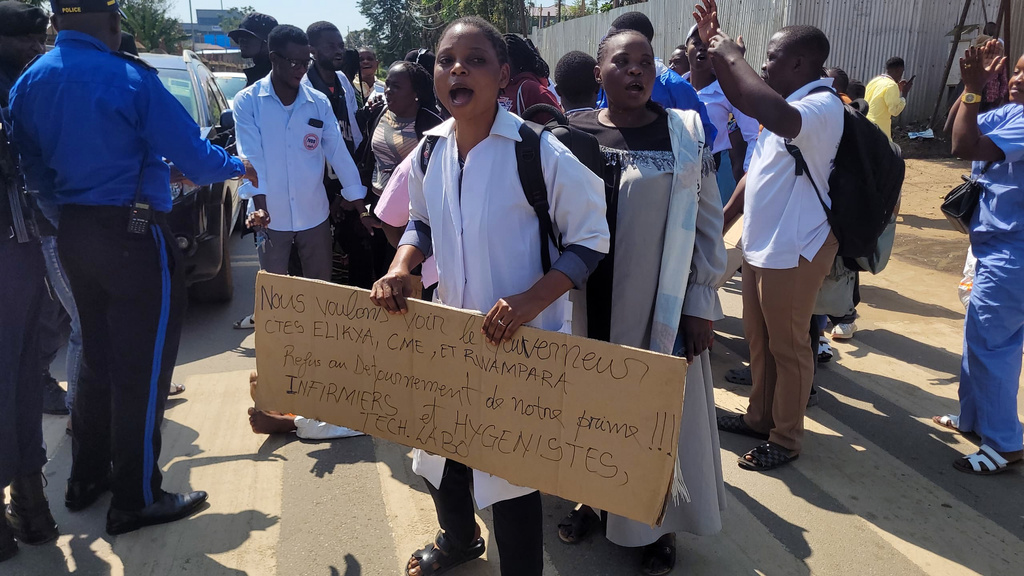 POLICE
Nous voulons voir le Gouverneur
CTES ELIKYA, CME, ET RWAMPARA
Refus au Detournement de notre prime !!!
INFIRMIERS et HYGENISTES,
TECH LABO